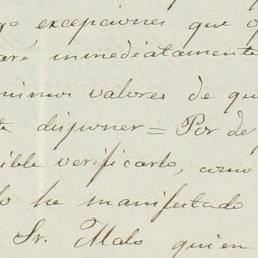 go excepciones que o
aré inmediatamente
nimos valores de qu
te disponer = Por de p
ible verificarlo, como
lo he manifestado
Sr. Malo quien